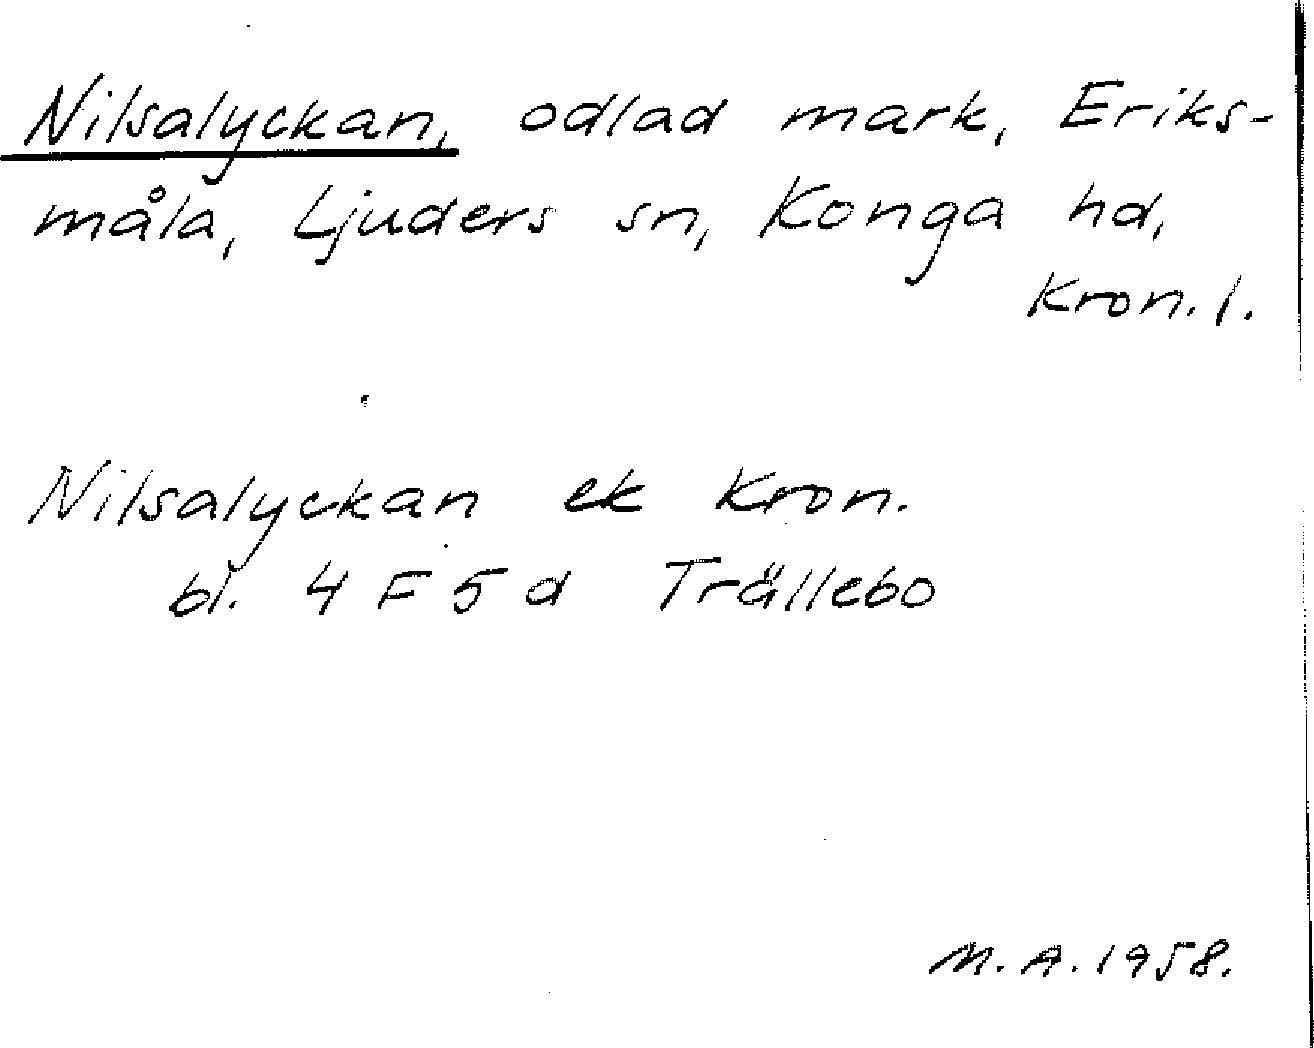 Nilsalyckan, odlad mark, Eriks-
måla, Ljuders sn, Konga hd,
Kron. l.
Nilsalyckan ek Kron.
bl. 4 F 5 d Trällebo
M. A. 1958.